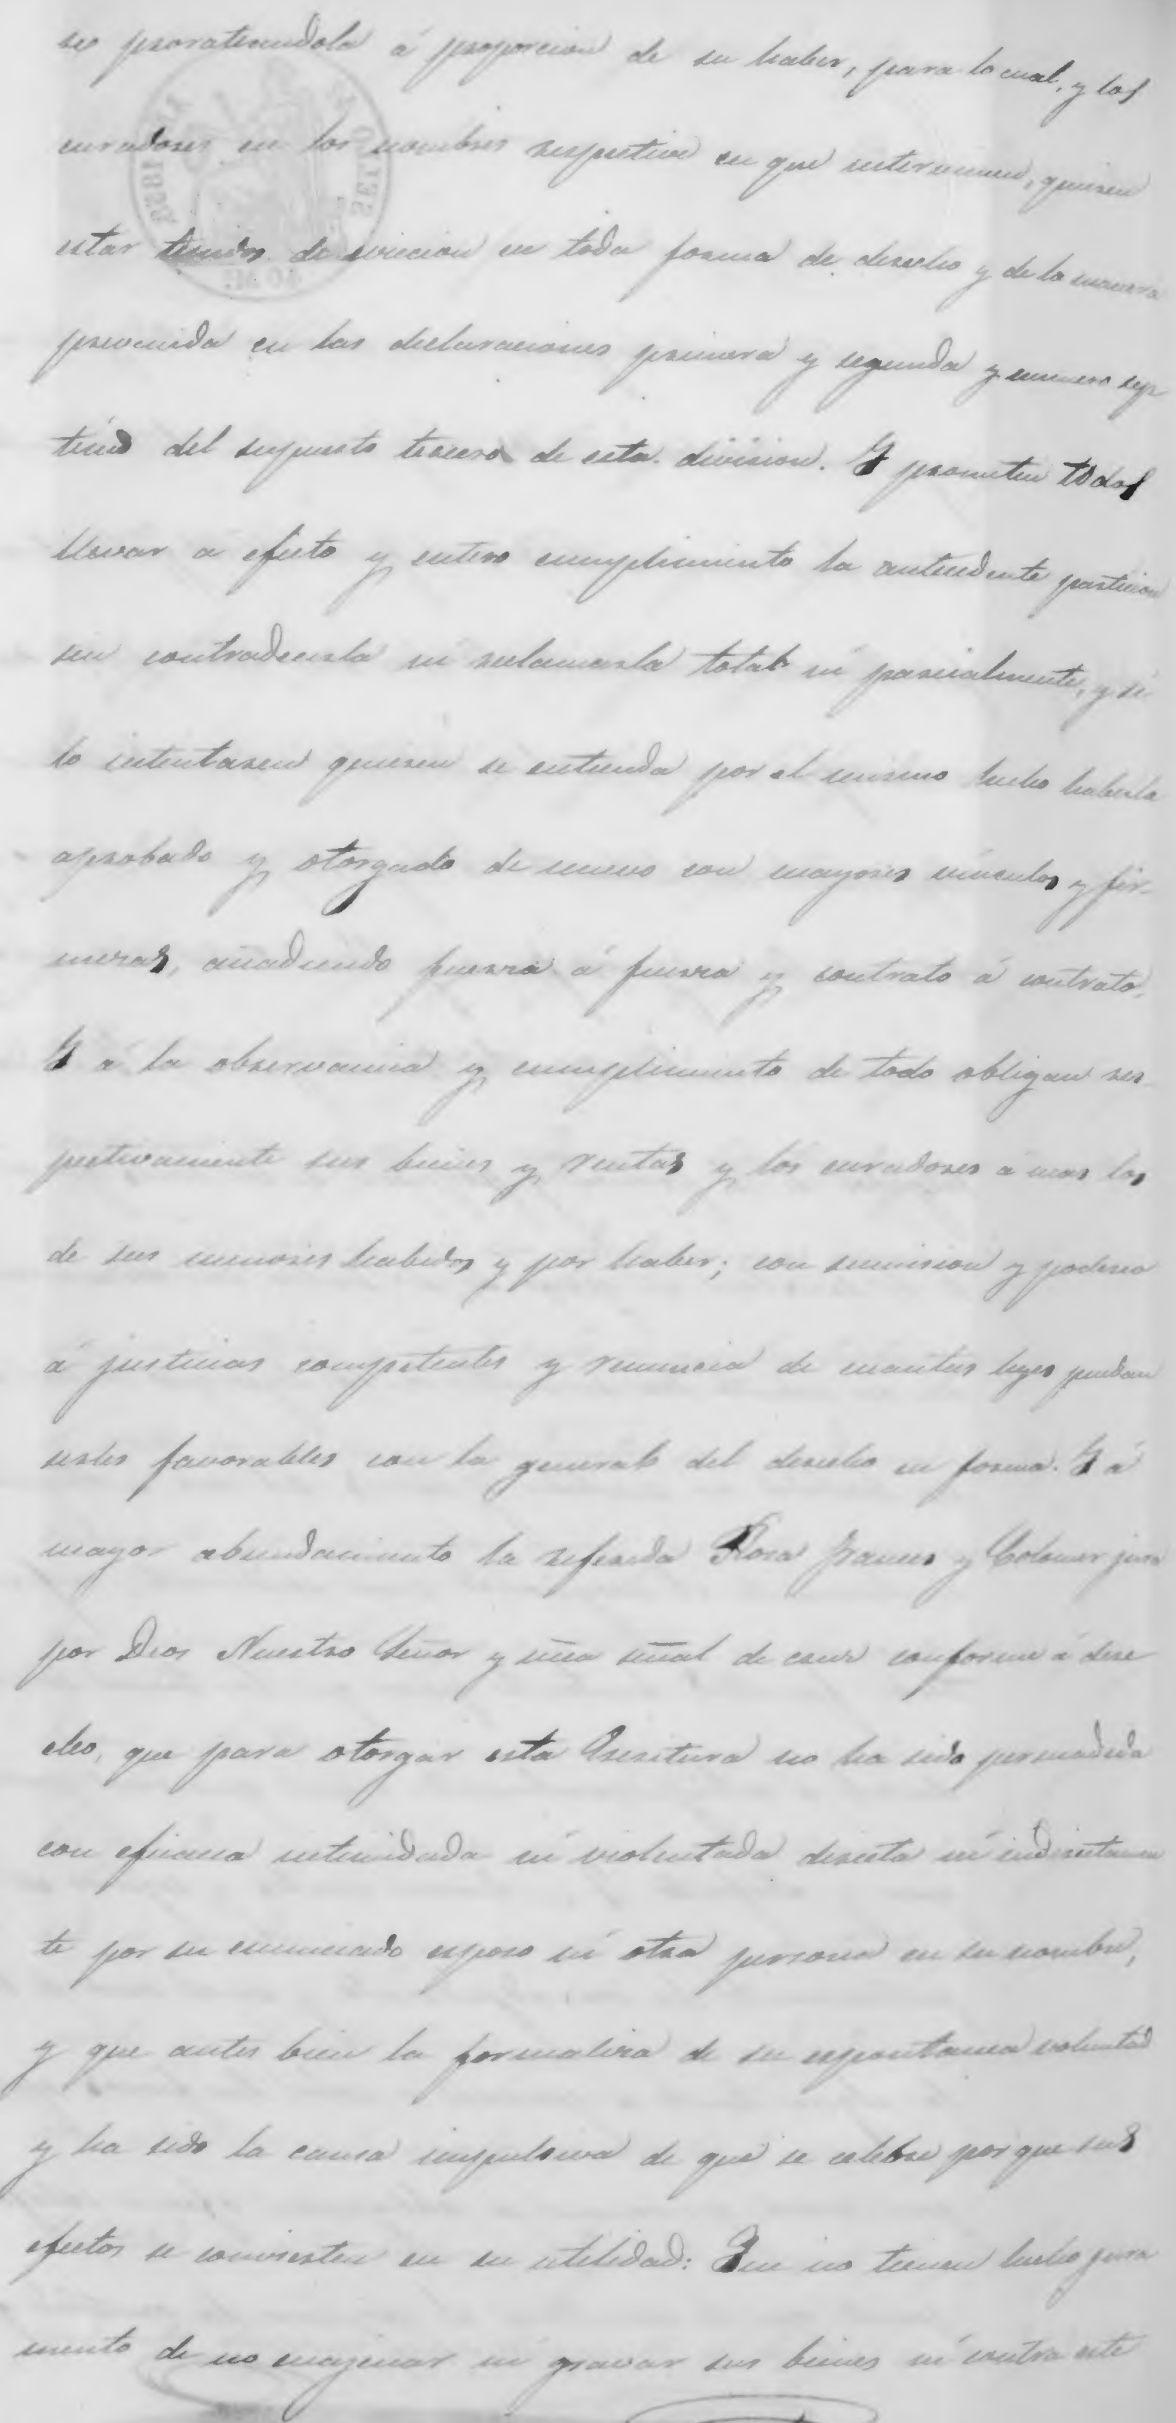 se prorateandola á proporcion de su haber, para lo cual, y los
curadores en los nombres respective en que intervienen, quieren
estar tenidos de eviccion en toda forma de derecho y de la manera
prevenida en las declaraciones primera y segunda y numero sep
timo del supuesto tercero de esta division. Y prometen todos
llevar a efecto y entero cumplimiento la antecedente particion
sin contradecirla ni reclamarla total ni parcialmente, y si
lo intentasen quieren se entienda por el mismo hecho haberla
aprobado y otorgado de nuevo con mayores vinculos y fir-
mezas, añadiendo fuerza á fuerza y contrato á contrato.
Y á la observancia y cumplimiento de todo obligan res-
pectivamente sus bienes y rentas y los curadores á mas los
de sus menores habidos y por haber; con sumision y poderio
á justicias competentes y renuncia de cuantas leyes puedan
serles favorables con la general del derecho en forma. Y á
mayor abundamiento la referida Rosa Frances y Colomer jura
por Dios Nuestro Señor y una señal de cruz conforme á dere
cho, que para otorgar esta Escritura no ha sido persuadida
con eficacia intimidada ni violentada directa ni indirectamen
te por su enunciado esposo ni otra persona en su nombre,
y que antes bien la formaliza de su espontanea voluntad
y ha sido la causa impulsiva de que se celebre porque sus
efectos se convierten en su utilidad: Que no tienen hecho jura
mento de no enagenar ni gravar sus bienes ni contra este